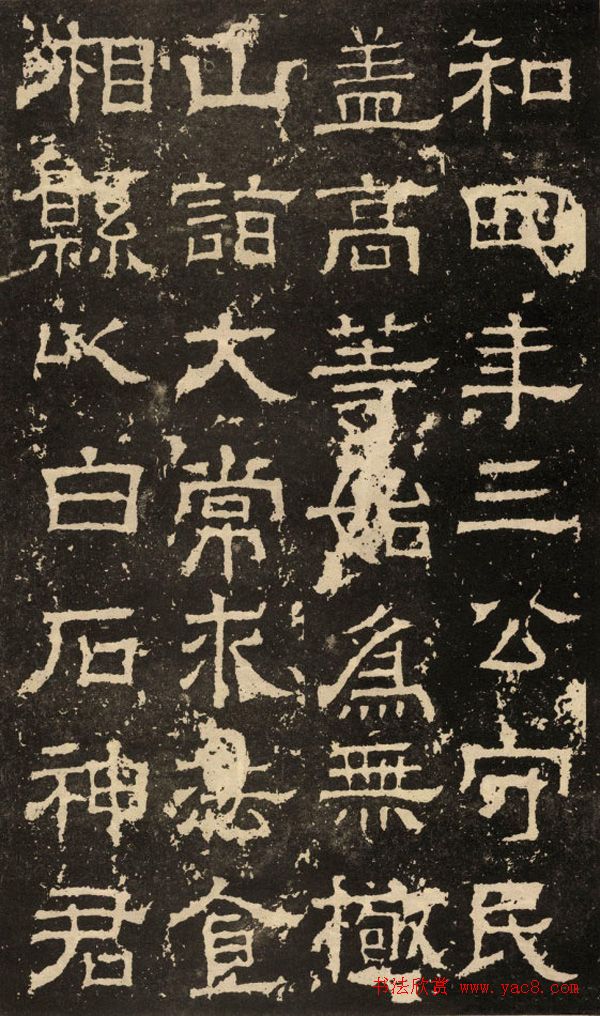 和四年三公守民
盖高等始為無極
山詣大常求法食
相縣以白石神君
书法欣赏 www.yac8.com